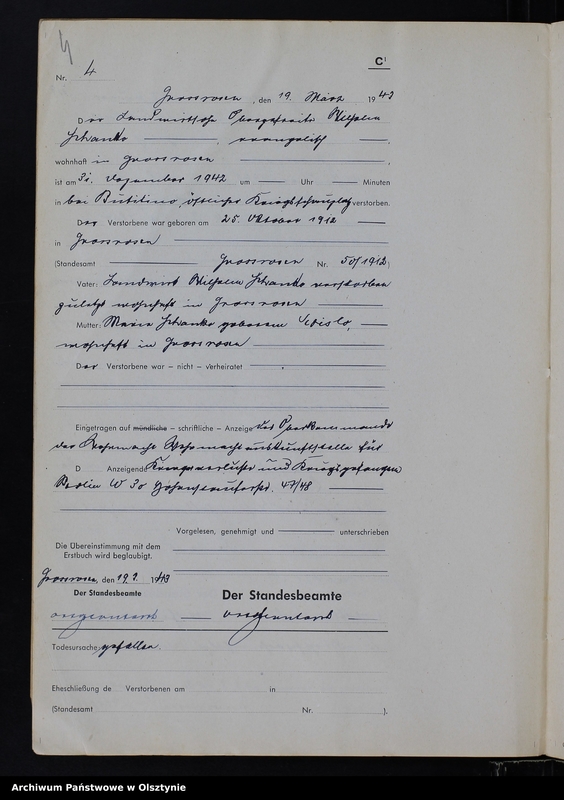 4
C¹
Nr. 4
Grossrosen, den 19. März 1943
Der Landwirtssohn Obergefreite Wilhelm
evangelisch
wohnhaft in Grossrosen
ist am 31. Dezember 1942 um — Uhr — Minuten
in bei östlicher Kriegsschauplatz verstorben.
Der Verstorbene war geboren am 25. Oktober 1912
in Grossrosen
(Standesamt Grossrosen Nr. 50/1912)
Vater: Landwirt Wilhelm verstorben
zuletzt wohnhaft in Grossrosen
Mutter: Marie geborene
wohnhaft in Grossrosen
Der Verstorbene war – nicht – verheiratet
Eingetragen auf mündliche – schriftliche – Anzeige des Oberkommando
der Wehrmacht Wehrmachtauskunftstelle für
D Anzeigende Kriegsverluste und Kriegsgefangene
Berlin W 30 Hohenstaufenstr. 47/48
Vorgelesen, genehmigt und unterschrieben
Die Übereinstimmung mit dem
Erstbuch wird beglaubigt.
Grossrosen, den 19. 1943
Der Standesbeamte
Der Standesbeamte
Todesursache: gefallen.
Eheschließung de Verstorbenen am in
(Standesamt Nr. ).
Archiwum Państwowe w Olsztynie